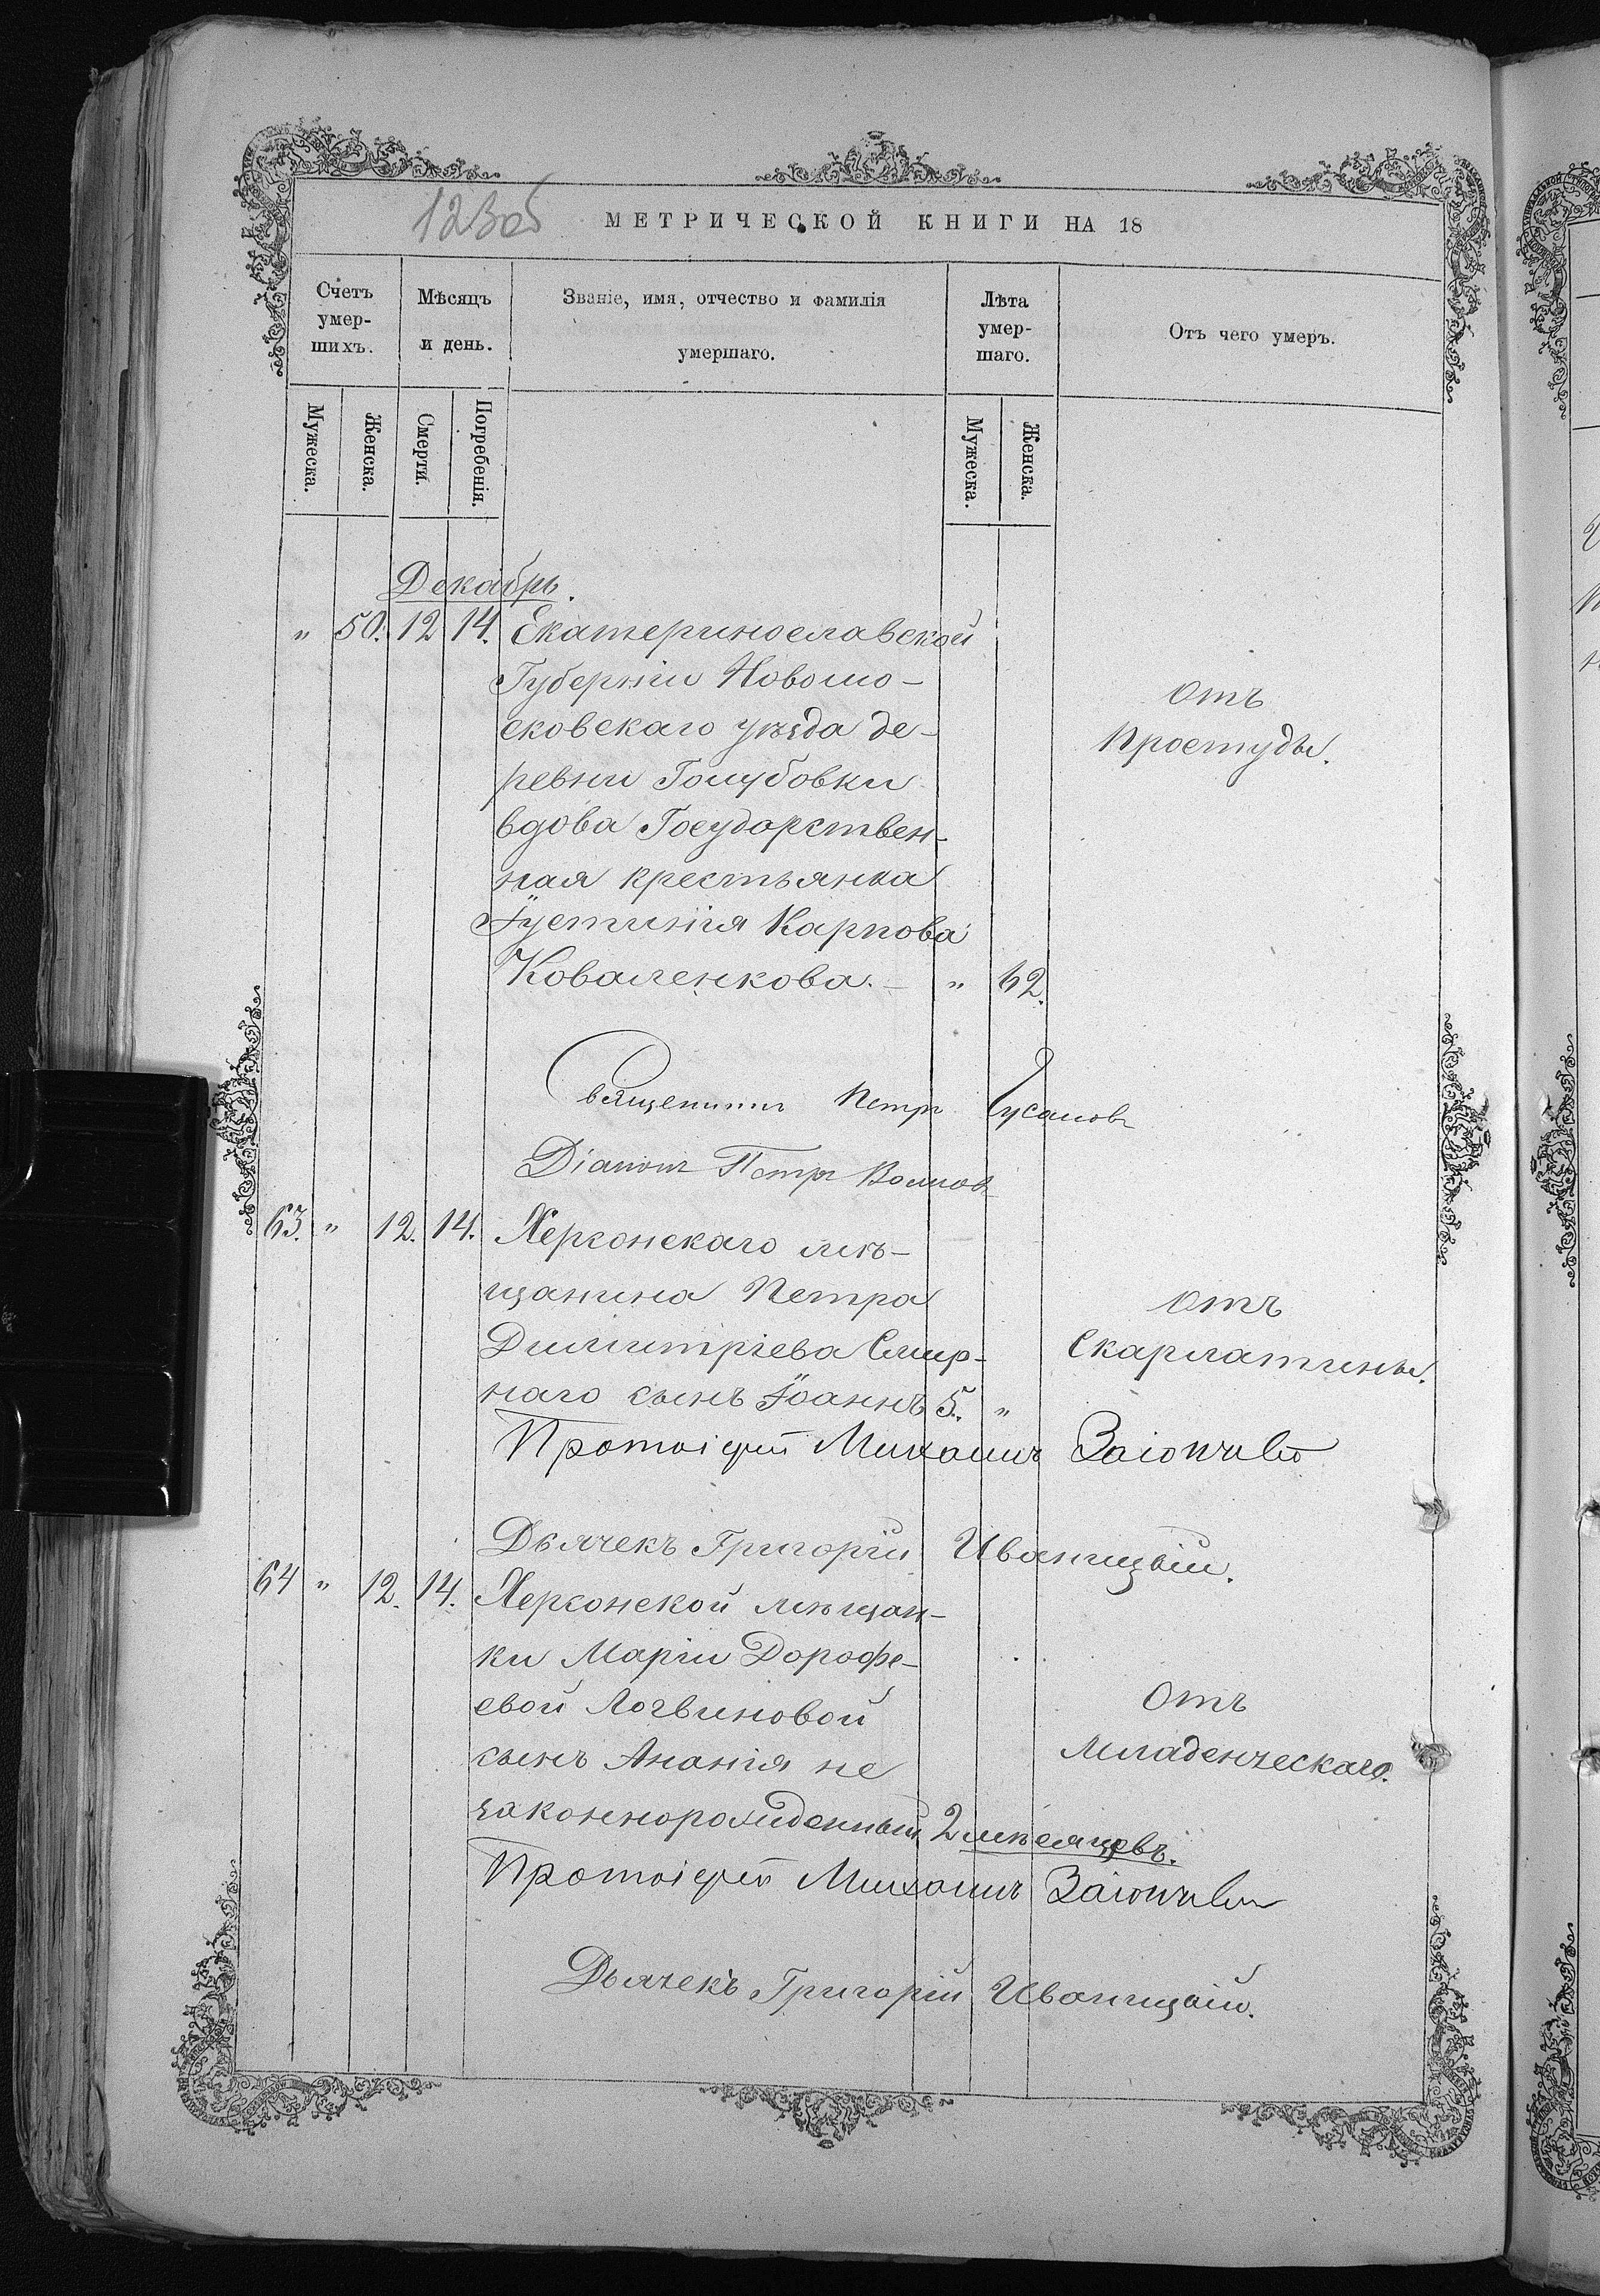 123об
МЕТРИЧЕСКОЙ КНИГИ НА 18
Счетъ умер-шихъ.
Мѣсяцъ и день.
Званіе, имя, отчество и фамилія умершаго.
Лѣта умер-шаго.
Отъ чего умеръ.
Мужеска.
Женска.
Смерти.
Погребенія.
Мужеска.
Женска.
Декабрь.
" 50. 12 14. Екатеринославской
Губерніи Новомо-
сковскаго уѣзда де-
ревни Голубовки
вдова Государствен-
ная крестьянка
Іустинія Карпова
Коваленкова. — " 62.
отъ
простуды.
Священникъ Петръ
Діаконъ Петръ Волковъ
63. " 12. 14. Херсонскаго мѣ-
щанина Петра
Димитріева Смир-
наго сынъ Іоаннъ 5. "
отъ
Скарлатины.
Протоіерей Михаилъ
Дьячекъ Григорій Иваницкій.
64 " 12. 14. Херсонской мѣщан-
ки Маріи Дорофе-
евой Логвиновой
сынъ Ананія не
законнорожденный 2 мѣсяцевъ.
отъ
Младенческаго.
Протоіерей Михаилъ
Дьячекъ Григорій Иваницкій.